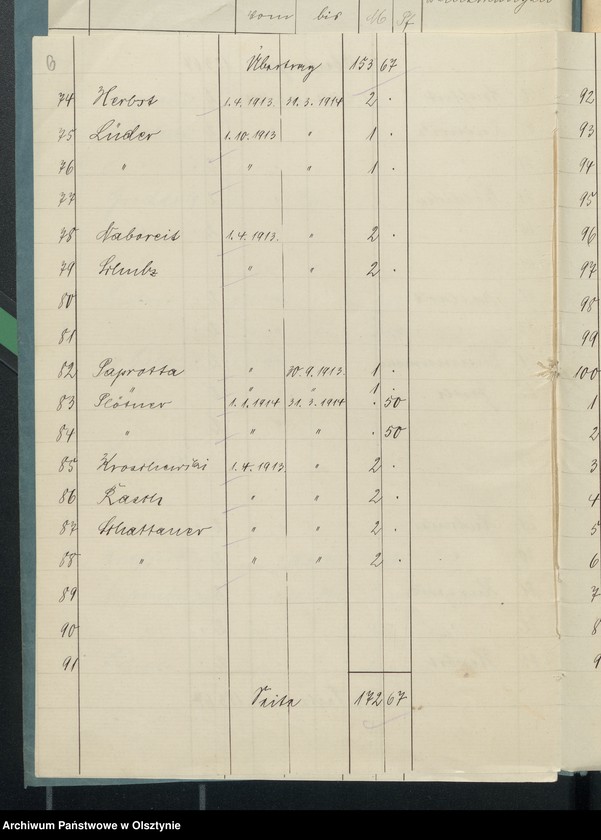 vom bis M Pf
B Übertrag 153 67
74 Herbst 1.4.1913 31.3.1914 2 .
75 Lüder 1.10.1913 " 1 .
76 " " " 1 .
77
78 Naboreit 1.4.1913. " 2 .
79 " " 2 .
80
81
82 Paprotta " 30.9.1913. 1 .
" " " 1 .
83 Plötner 1.1.1914 31.3.1914 . 50
84 " " " . 50
85 1.4.1913. " 2 .
86 " " 2 .
87 Schattauer " " 2 .
88 " " " 2 .
89
90
91
Seite 172 67
92
93
94
95
96
97
98
99
100
1
2
3
4
5
6
7
8
9
Archiwum Państwowe w Olsztynie